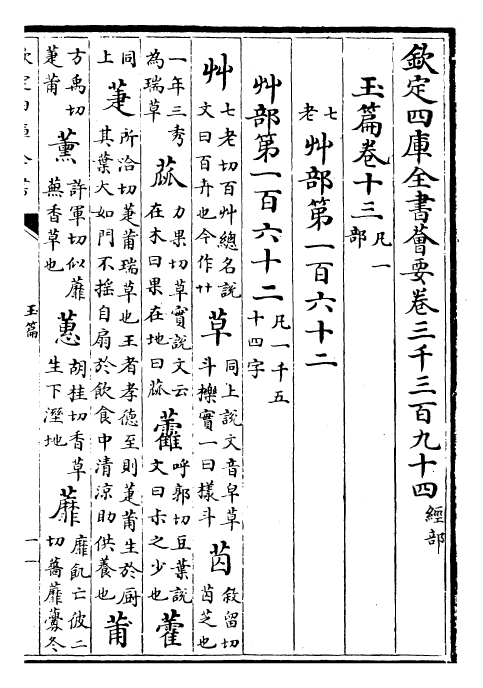 欽定四庫全書薈要卷三千三百九十四 經部
玉篇卷十三 凡一部
七老 艸部第一百六十二
艸部第一百六十二 凡一千五十四字
艸 七老切百艸總名說文曰百卉也今作艹 草 同上說文音皁草斗櫟實一曰樣斗 苬 敘留切苬芝也
一年三秀為瑞草 蓏 力果切草實說文云在木曰果在地曰蓏 𧆑 呼郭切豆葉說文曰尗之少也 藿
同上 萐 所洽切萐莆瑞草也王者孝德至則萐莆生於厨其葉大如門不搖自扇於飲食中清涼助供養也 莆
方禹切萐莆 薰 許軍切似蘼蕪香草也 蕙 胡桂切香草生下溼地 蘼 靡飢亡彼二切蘠蘼虋冬
玉篇
一